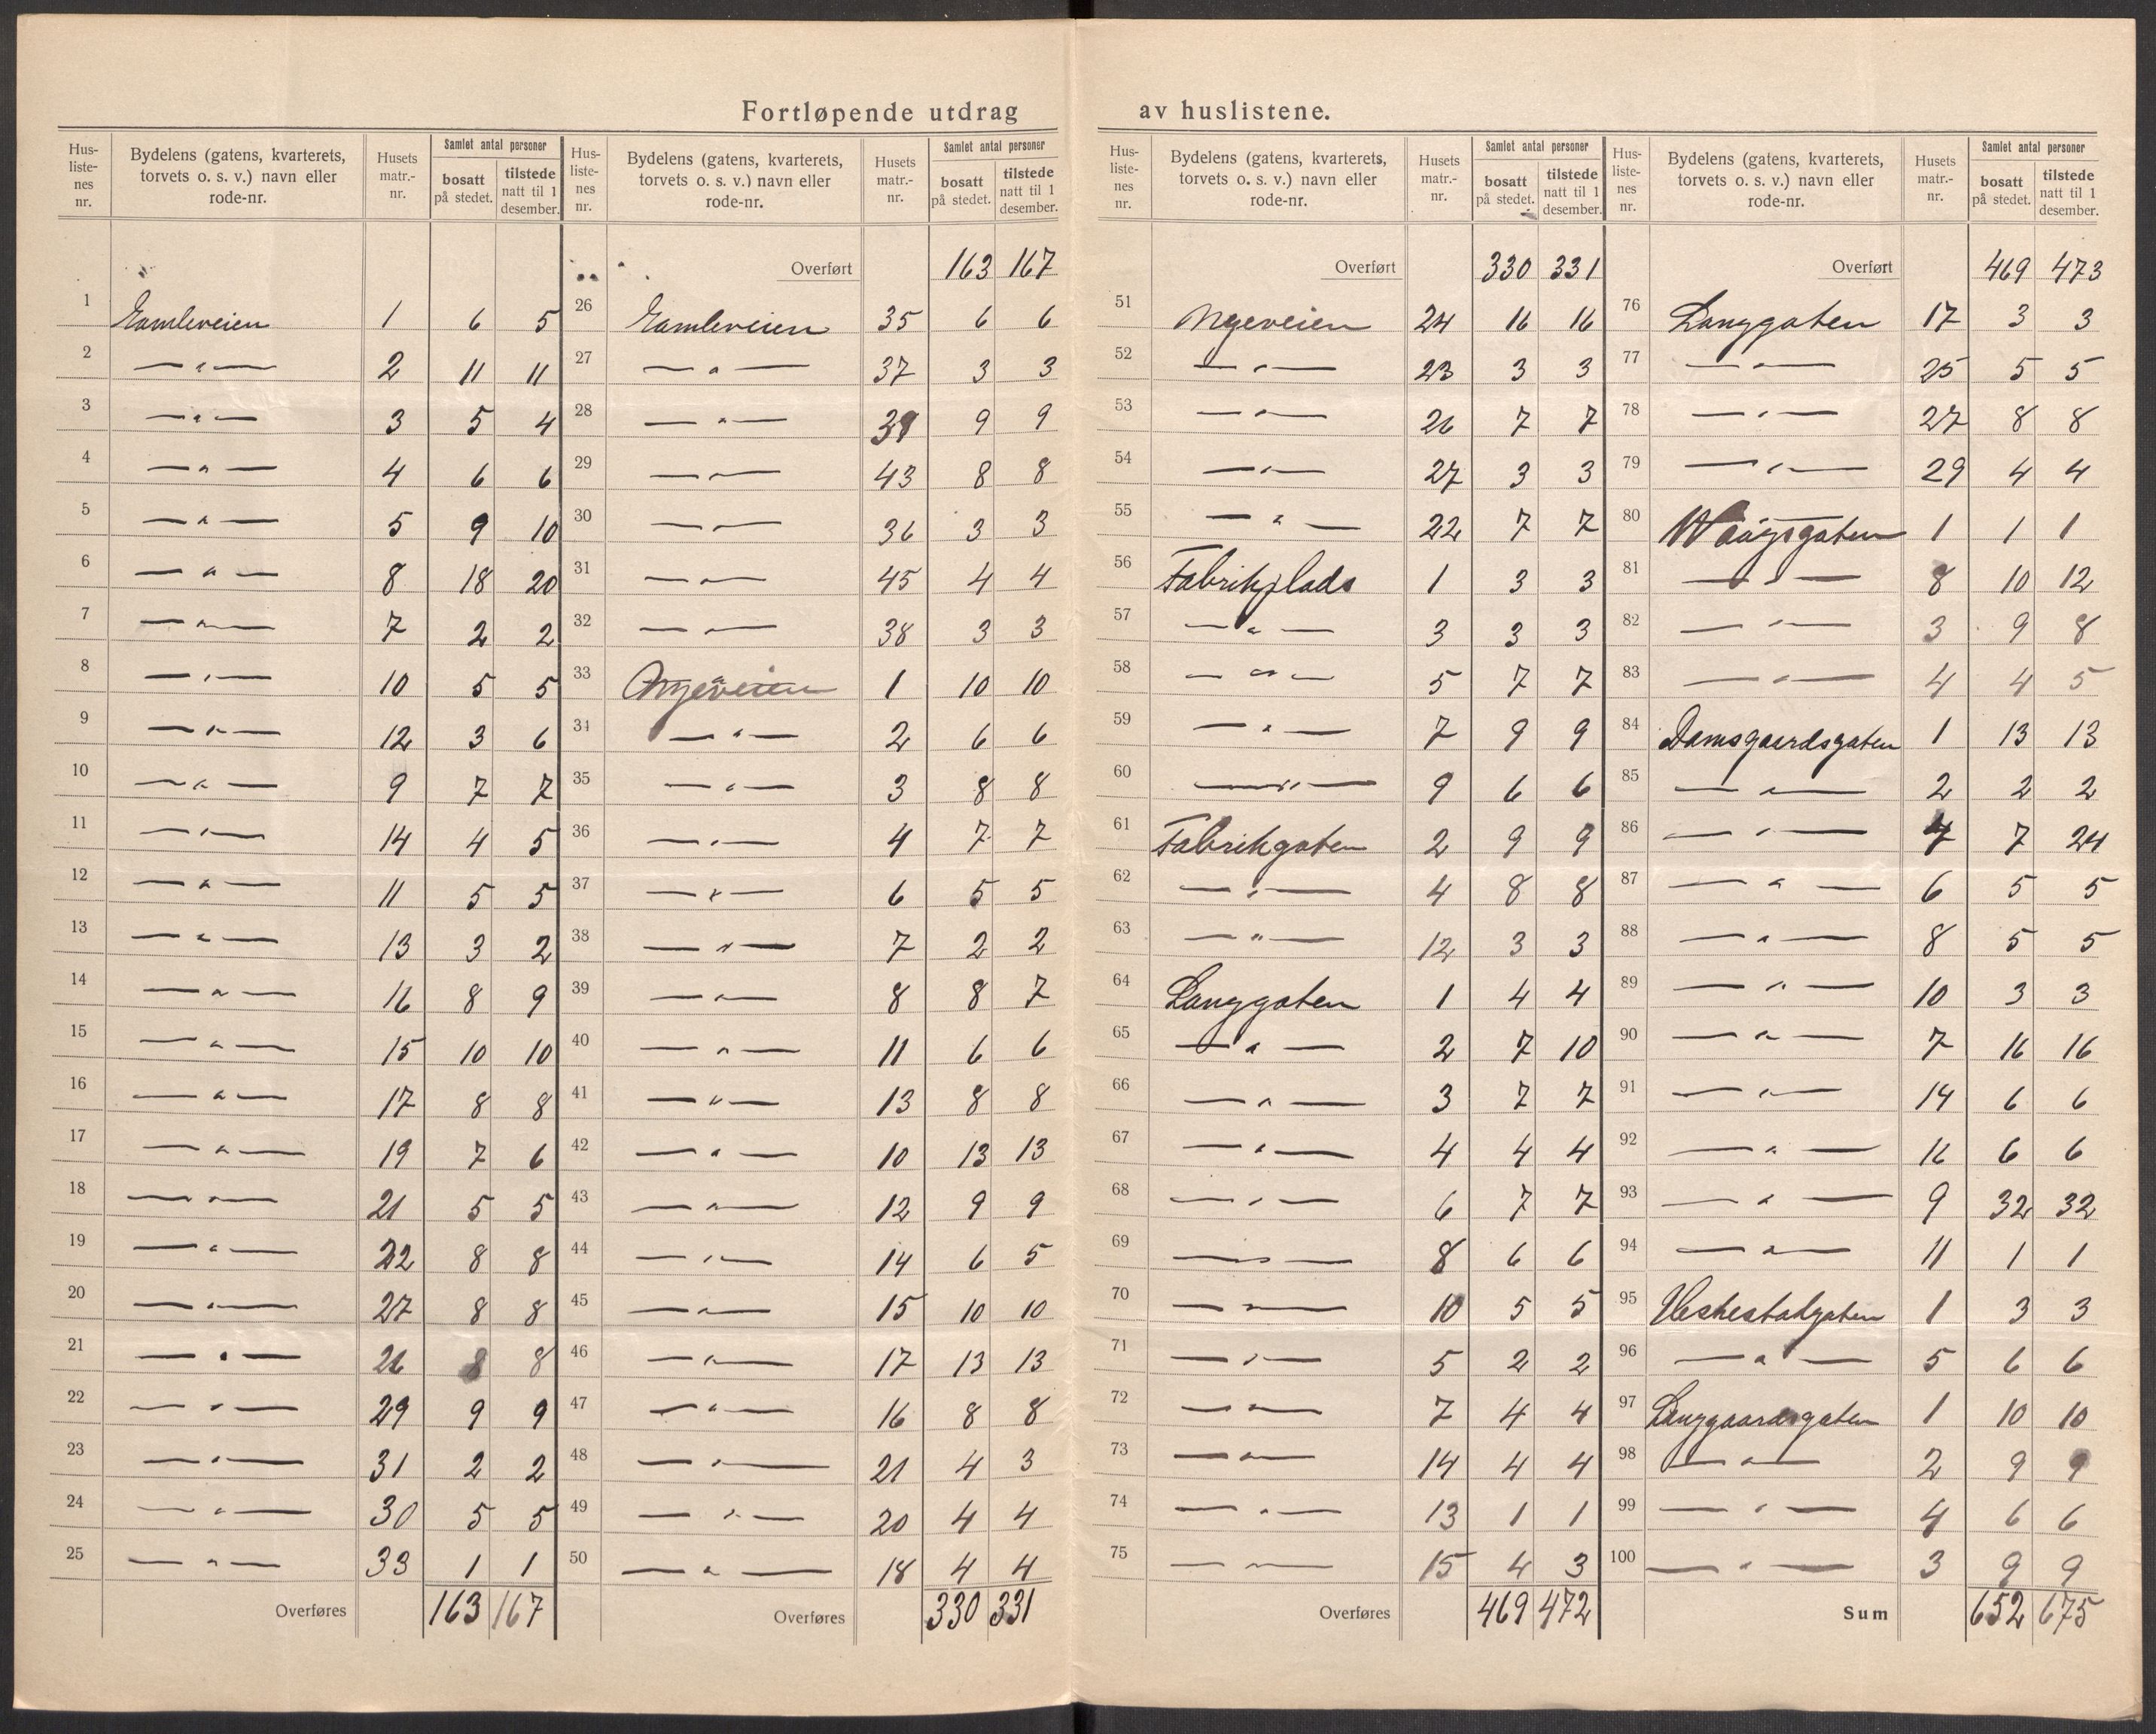 Fortløpende utdrag av huslistene.
Hus-listenes nr. | Bydelens (gatens, kvarterets, torvets o. s. v.) navn eller rode-nr. | Husets matr.-nr. | Samlet antal personer: bosatt på stedet. | tilstede natt til 1 desember.
1 Gamleveien 1 6 5
2 —"— 2 11 11
3 —"— 3 5 4
4 —"— 4 6 6
5 —"— 5 9 10
6 —"— 8 18 20
7 —"— 7 2 2
8 —"— 10 5 5
9 —"— 12 3 6
10 —"— 9 7 7
11 —"— 14 4 5
12 —"— 11 5 5
13 —"— 13 3 2
14 —"— 16 8 9
15 —"— 15 10 10
16 —"— 17 8 8
17 —"— 19 7 6
18 —"— 21 5 5
19 —"— 22 8 8
20 —"— 27 8 8
21 —"— 26 8 8
22 —"— 29 9 9
23 —"— 31 2 2
24 —"— 30 5 5
25 —"— 33 1 1
Overføres 163 167
Hus-listenes nr. | Bydelens (gatens, kvarterets, torvets o. s. v.) navn eller rode-nr. | Husets matr.-nr. | Samlet antal personer: bosatt på stedet. | tilstede natt til 1 desember.
Overført 163 167
26 Gamleveien 35 6 6
27 —"— 37 3 3
28 —"— 39 9 9
29 —"— 43 8 8
30 —"— 36 3 3
31 —"— 45 4 4
32 —"— 38 3 3
33 Nyeveien 1 10 10
34 —"— 2 6 6
35 —"— 3 8 8
36 —"— 4 7 7
37 —"— 6 5 5
38 —"— 7 2 2
39 —"— 8 8 7
40 —"— 11 6 6
41 —"— 13 8 8
42 —"— 10 13 13
43 —"— 12 9 9
44 —"— 14 6 5
45 —"— 15 10 10
46 —"— 17 13 13
47 —"— 16 8 8
48 —"— 21 4 3
49 —"— 20 4 4
50 —"— 18 4 4
Overføres 330 331
Hus-listenes nr. | Bydelens (gatens, kvarterets, torvets o. s. v.) navn eller rode-nr. | Husets matr.-nr. | Samlet antal personer: bosatt på stedet. | tilstede natt til 1 desember.
Overført 330 331
51 Nyeveien 24 16 16
52 —"— 23 3 3
53 —"— 26 7 7
54 —"— 27 3 3
55 —"— 22 7 7
56 Fabrikplads 1 3 3
57 —"— 3 3 3
58 —"— 5 7 7
59 —"— 7 9 9
60 —"— 9 6 6
61 Fabrikgaten 2 9 9
62 —"— 4 8 8
63 —"— 12 3 3
64 Langgaten 1 4 4
65 —"— 2 7 10
66 —"— 3 7 7
67 —"— 4 4 4
68 —"— 6 7 7
69 —"— 8 6 6
70 —"— 10 5 5
71 —"— 5 2 2
72 —"— 7 4 4
73 —"— 14 4 4
74 —"— 13 1 1
75 —"— 15 4 3
Overføres 469 472
Hus-listenes nr. | Bydelens (gatens, kvarterets, torvets o. s. v.) navn eller rode-nr. | Husets matr.-nr. | Samlet antal personer: bosatt på stedet. | tilstede natt til 1 desember.
Overført 469 473
76 Langgaten 17 3 3
77 —"— 25 5 5
78 —"— 27 8 8
79 —"— 29 4 4
80 Waagsgaten 1 1 1
81 —"— 8 10 12
82 —"— 3 9 8
83 —"— 4 4 5
84 Damsgaardsgaten 1 13 13
85 —"— 2 2 2
86 —"— 4 7 24
87 —"— 6 5 5
88 —"— 8 5 5
89 —"— 10 3 3
90 —"— 7 16 16
91 —"— 14 6 6
92 —"— 16 6 6
93 —"— 9 32 32
94 —"— 11 1 1
95 1 3 3
96 —"— 5 6 6
97 Langgaardsgaten 1 10 10
98 —"— 2 9 9
99 —"— 4 6 6
100 —"— 3 9 9
Sum 652 675